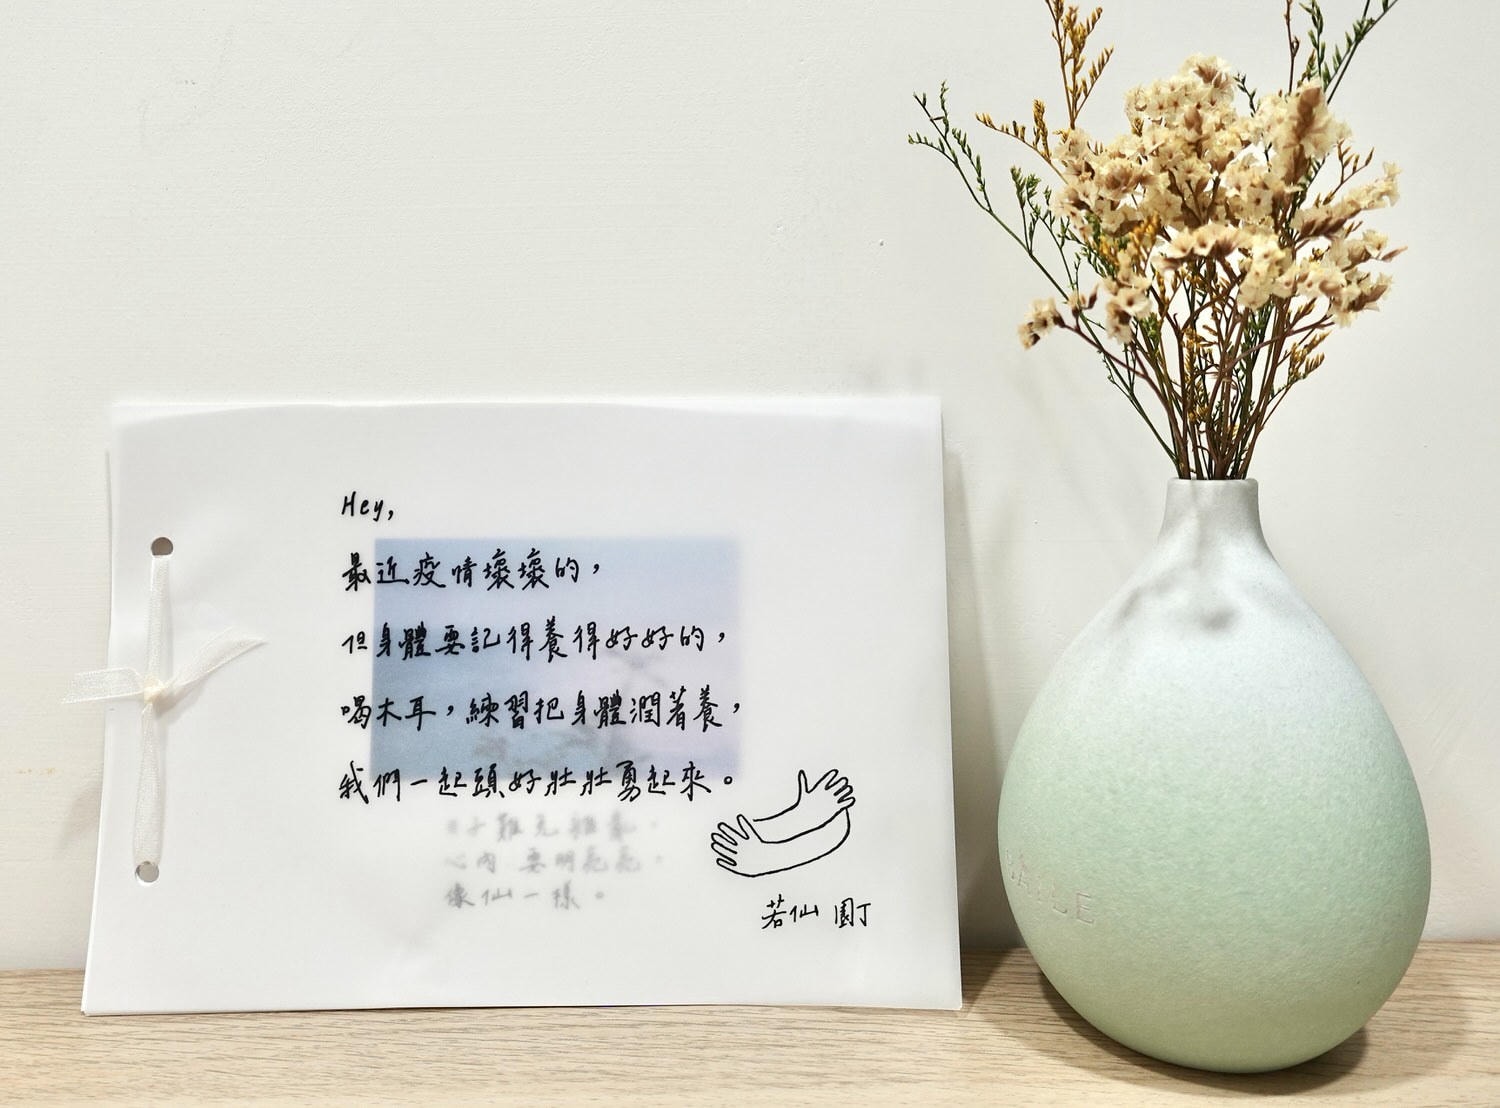 Hey,
最近疫情壞壞的，
但身體要記得養得好好的，
喝木耳，練習把身體潤著養，
我們一起頭好壯壯勇起來。
心內 要明亮亮，
像仙一樣。
若仙 園丁